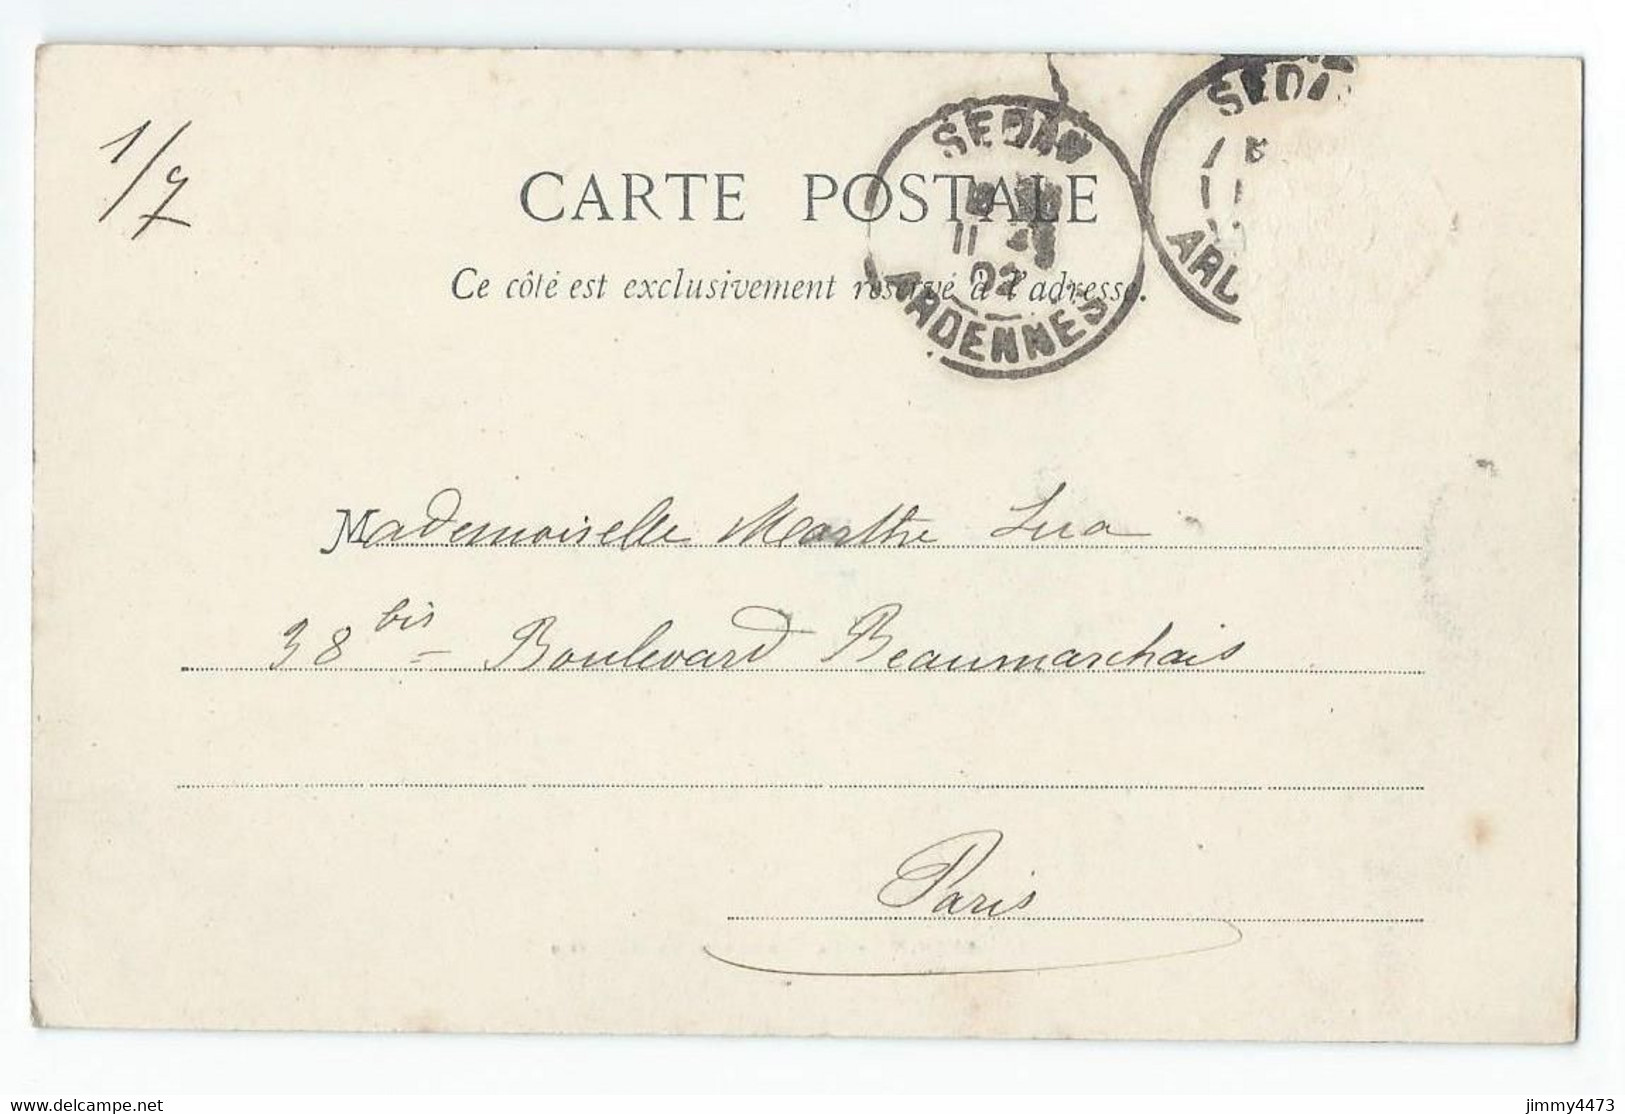 1/7
CARTE POSTALE
Ce côté est exclusivement réservé à l'adresse.
SEDAN
11
02
ARDENNES
SEDA
Mademoiselle Marthe Lua
38 bis = Boulevard Beaumarchais
Paris
www.delcampe.net
jimmy4473